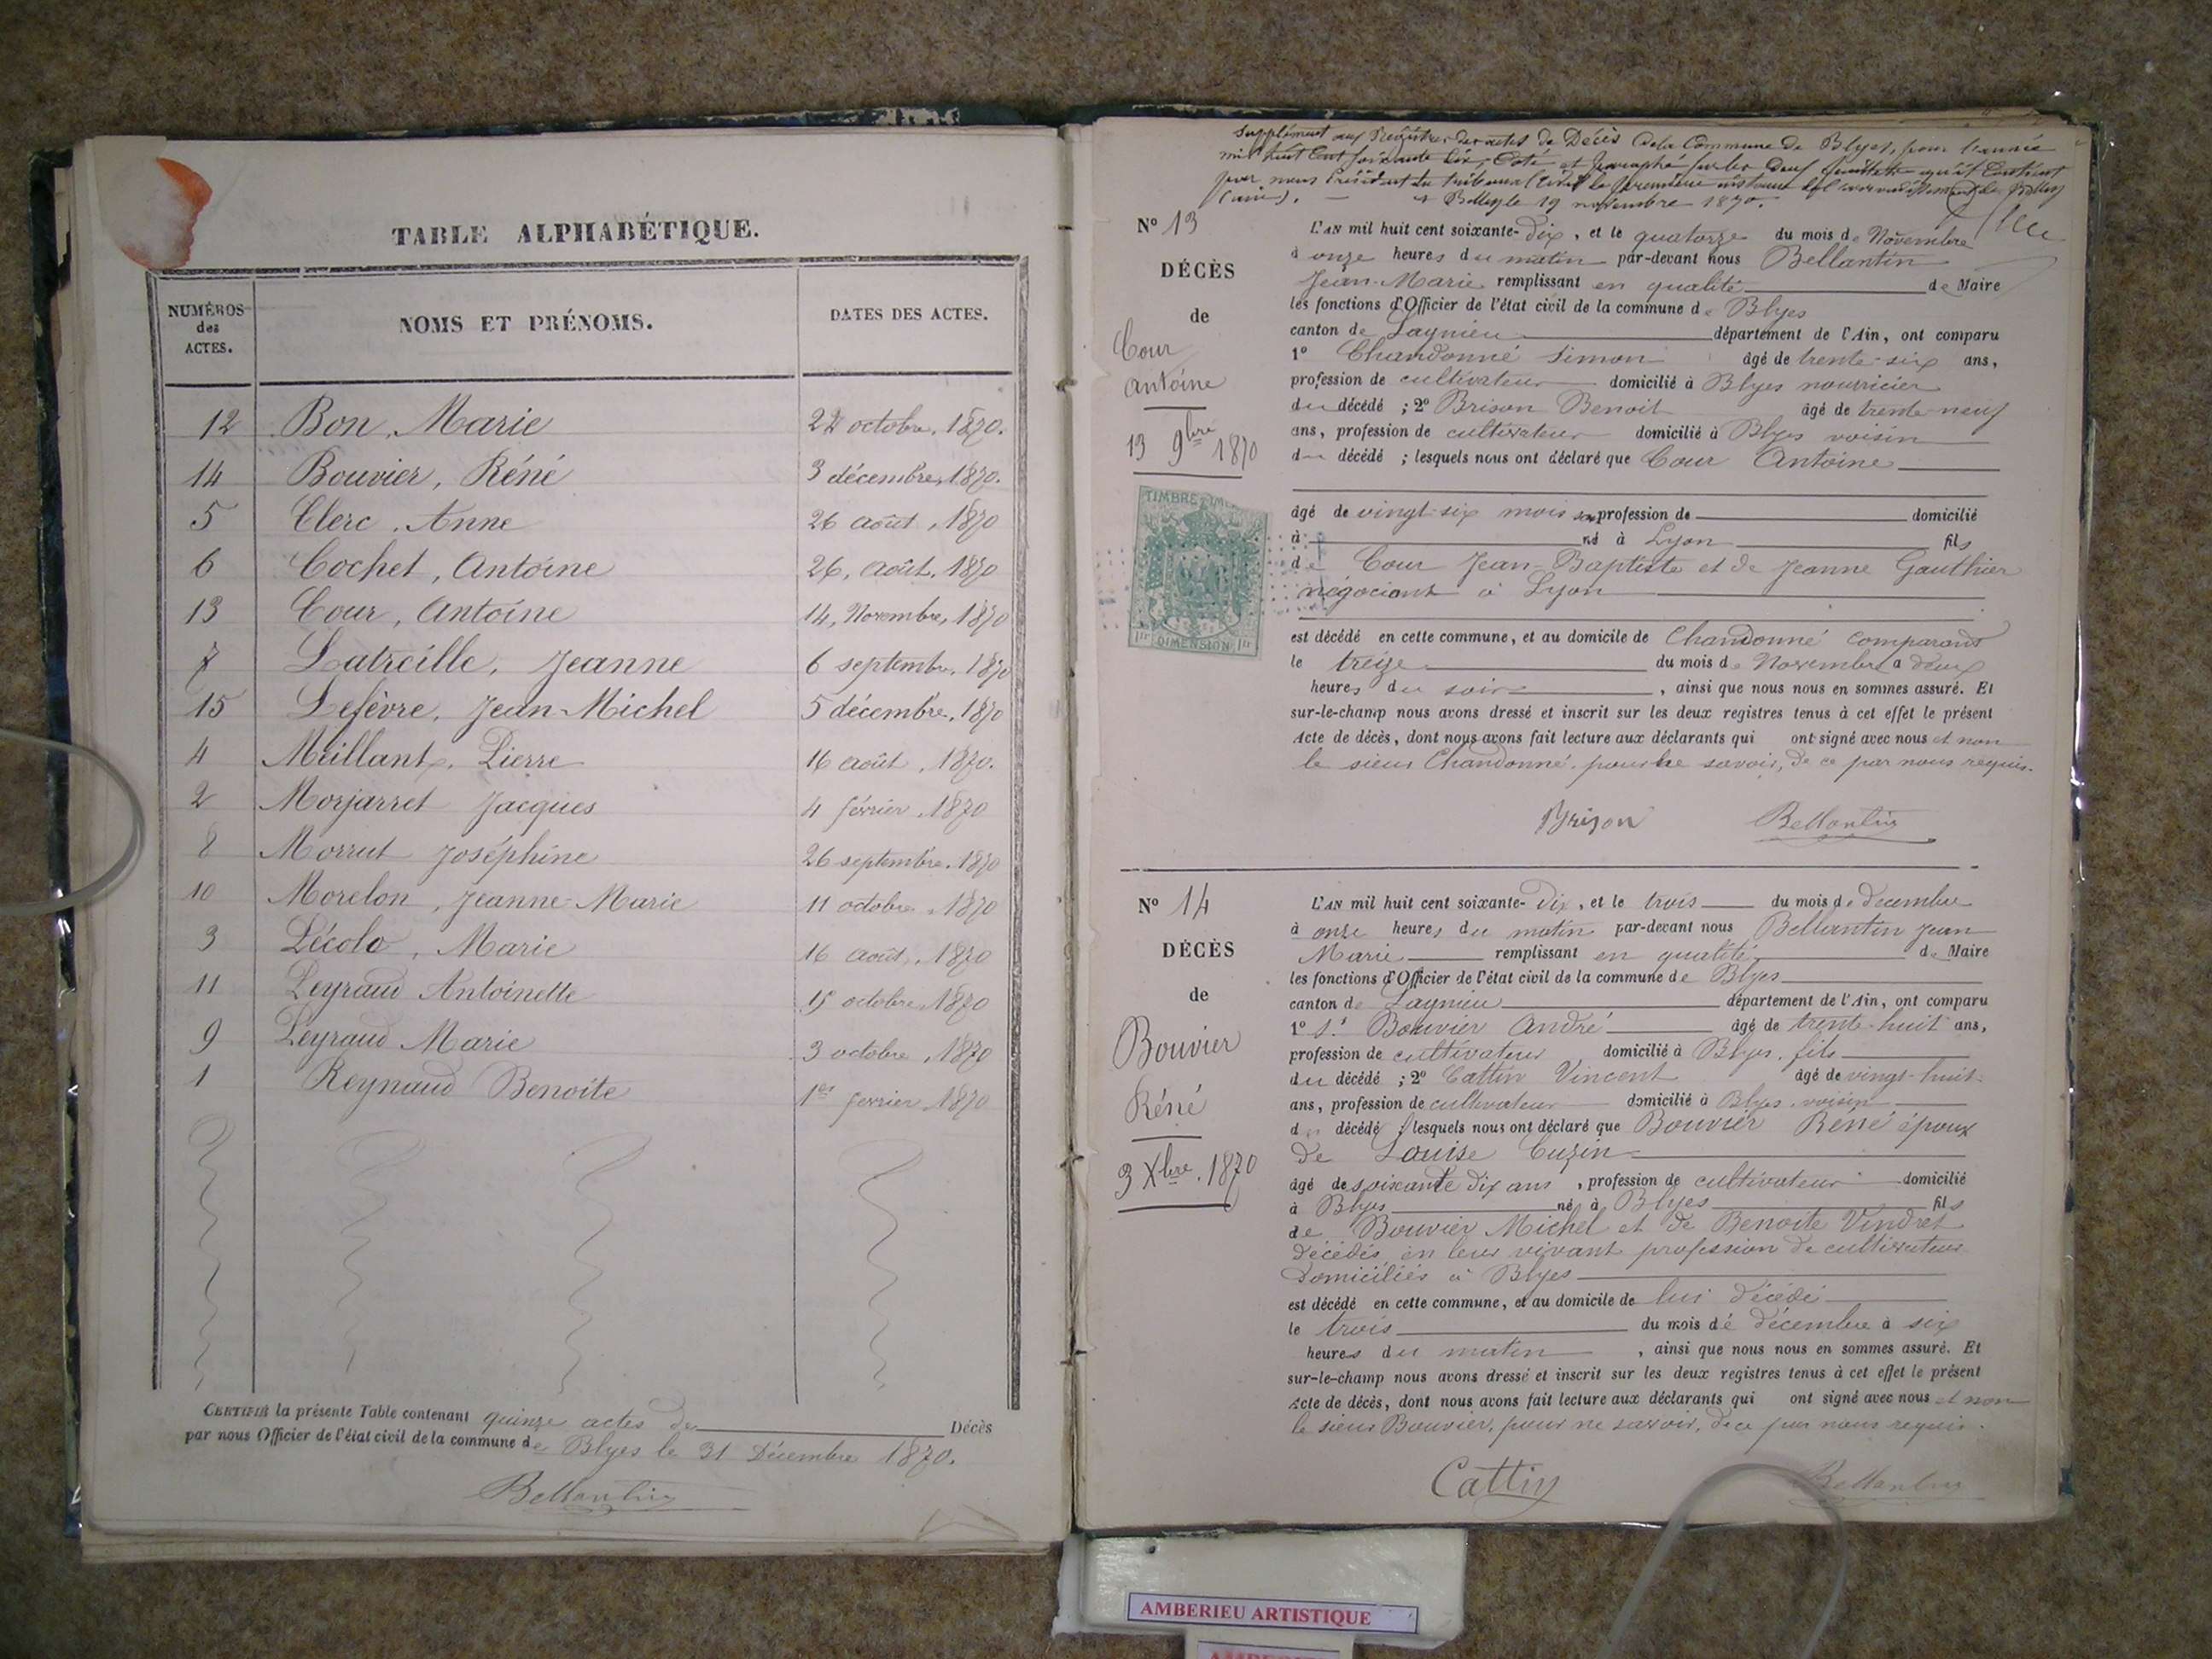 TABLE ALPHABÉTIQUE.
NUMÉROS des ACTES.
NOMS ET PRÉNOMS.
DATES DES ACTES.
12 Bon, Marie 22 octobre, 1870.
14 Bouvier, Réné 3 décembre, 1870.
5 Clerc, Anne 26 août, 1870
6 Cochet, Antoine 26, août, 1870
13 Cour, Antoine 14, Novembre, 1870
7 Latreille, Jeanne 6 septembre, 1870
15 Lefèvre, Jean-Michel 5 décembre, 1870
4 Meillant, Pierre 16 août, 1870.
2 Morjarret Jacques 4 février, 1870
8 Morrut Joséphine 26 septembre, 1870
10 Morelon, Jeanne-Marie 11 octobre, 1870
3 Pécolo, Marie 16 août, 1870
11 Peyraud Antoinette octobre, 1870
9 Peyraud Marie 3 octobre, 1870
1 Reynaud Benoite 1er fevrier, 1870
CERTIFIÉ la présente Table contenant quinze actes de Décès
par nous Officier de l'état civil de la commune de Blyes le 31 Décembre 1870.
Bellantin
Supplément aux Registres des actes de Décès de la Commune de Blyes, pour l'année
mil huit cent soixante dix, Coté et paraphé sur les deux feuillets qu'il Contient
par nous Président du tribunal civil de première instance de l'arrondissement de Belley
(ain). — Belley le 19 novembre 1870.
N° 13
DÉCÈS
de
Cour
Antoine
13 9bre 1870
TIMBRE IM
DIMENSION
L'AN mil huit cent soixante-dix, et le quatorze du mois de Novembre
à onze heures du matin par-devant nous Bellantin
Jean-Marie remplissant en qualité de Maire
les fonctions d'Officier de l'état civil de la commune de Blyes
canton de Lagnieu département de l'Ain, ont comparu
1° Chandonné Simon âgé de trente-six ans,
profession de cultivateur domicilié à Blyes nourricier
du décédé ; 2° Brison Benoit âgé de trente-neuf
ans, profession de cultivateur domicilié à Blyes voisin
du décédé ; lesquels nous ont déclaré que Cour Antoine
âgé de vingt-six mois profession de domicilié
à né à Lyon fils
de Cour Jean-Baptiste et de Jeanne Gauthier
négociant à Lyon
est décédé en cette commune, et au domicile de Chandonné comparant
le treize du mois de Novembre à deux
heures du soir, ainsi que nous nous en sommes assuré. Et
sur-le-champ nous avons dressé et inscrit sur les deux registres tenus à cet effet le présent
Acte de décès, dont nous avons fait lecture aux déclarants qui ont signé avec nous et non
le sieur Chandonné, pour ne savoir, de ce par nous requis.
Brison Bellantin
N° 14
DÉCÈS
de
Bouvier
Réné
3 Xbre. 1870
L'AN mil huit cent soixante-Dix, et le trois du mois de décembre
à onze heures du matin par-devant nous Bellantin Jean
Marie remplissant en qualité de Maire
les fonctions d'Officier de l'état civil de la commune de Blyes
canton de Lagnieu département de l'Ain, ont comparu
1° Sr Bouvier André âgé de trente-huit ans,
profession de cultivateur domicilié à Blyes, fils
du décédé ; 2° Cattin Vincent âgé de vingt-huit
ans, profession de cultivateur domicilié à Blyes, voisin
du décédé ; lesquels nous ont déclaré que Bouvier René époux
de Louise Cuzin
âgé de soixante dix ans, profession de cultivateur domicilié
à Blyes né à Blyes fils
de Bouvier Michel et de Benoite Vindret
décédés en leur vivant profession de cultivateur
Domiciliés à Blyes
est décédé en cette commune, et au domicile de lui décédé
le trois du mois de décembre à six
heures du matin, ainsi que nous nous en sommes assuré. Et
sur-le-champ nous avons dressé et inscrit sur les deux registres tenus à cet effet le présent
Acte de décès, dont nous avons fait lecture aux déclarants qui ont signé avec nous et non
le sieur Bouvier, pour ne savoir, de ce par nous requis.
Cattin Bellantin
AMBERIEU ARTISTIQUE